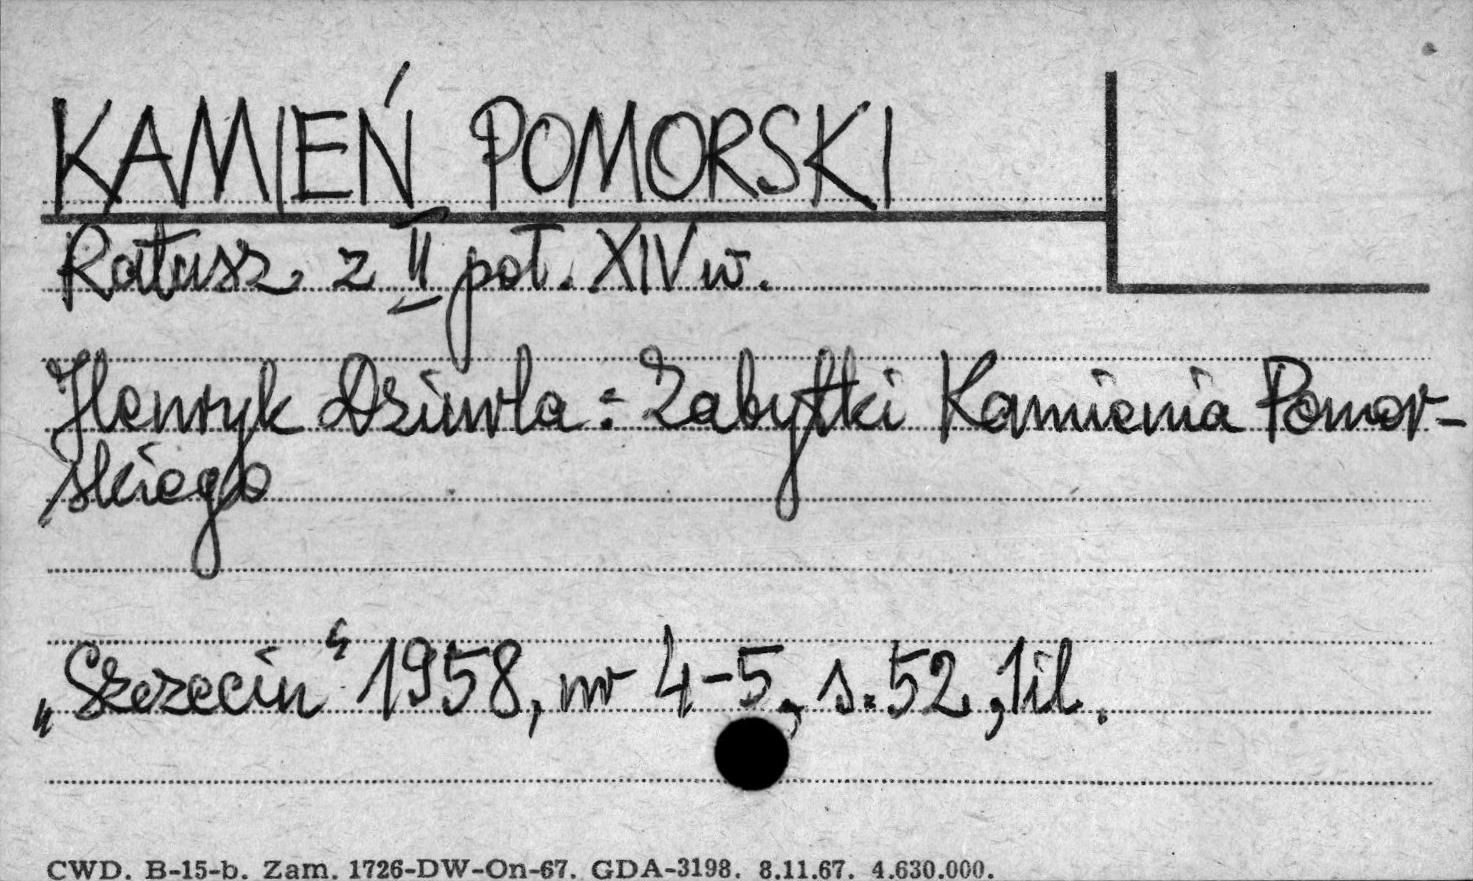 KAMIEŃ POMORSKI
Ratusz z II poł. XIV w.
Henryk Dziurla: Zabytki Kamienia Pomor-
skiego
„Szczecin" 1958, nr 4-5, s. 52, 1 il.
CWD. B-15-b. Zam. 1726-DW-On-67. GDA-3198. 8.11.67. 4.630.000.